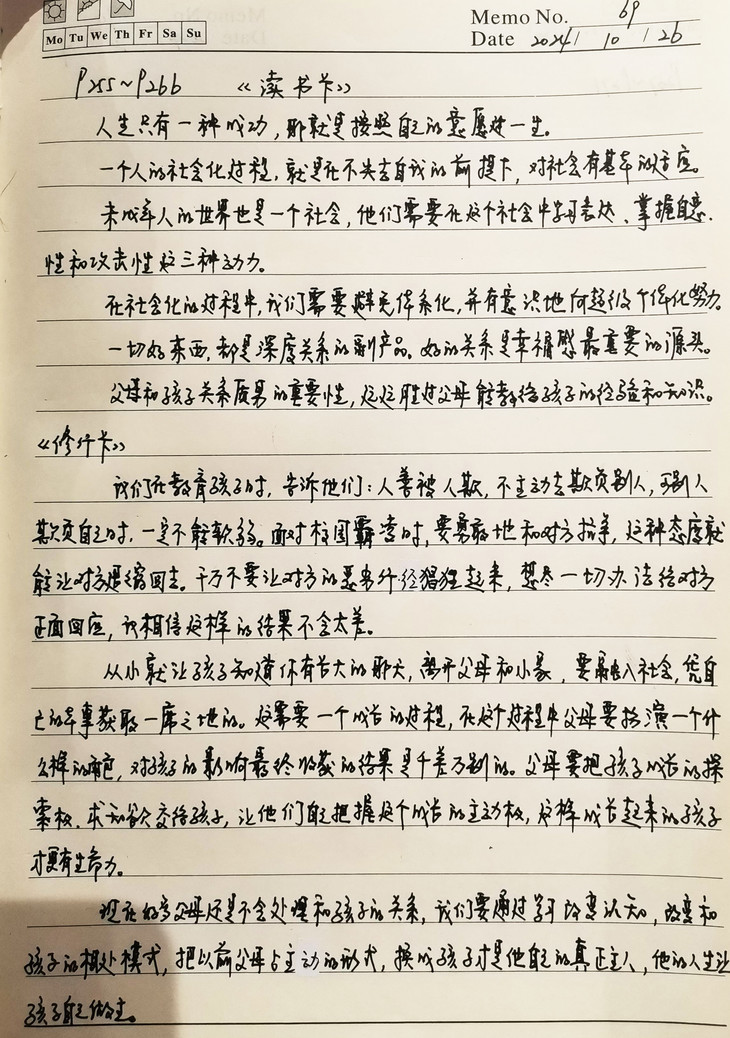 Memo No. 69
Mo Tu We Th Fr Sa Su
Date 2024 / 10 / 26
P255~P266 《读书卡》
人生只有一种成功，那就是按照自己的意愿过一生。
一个人的社会化过程，就是在不失去自我的前提下，对社会有基本的适应。
未成年人的世界也是一个社会，他们需要在这个社会中学习表达、掌握自恋、
性和攻击性这三种动力。
在社会化的过程中，我们需要避免体系化，并有意识地向超级个体化努力。
一切好东西，都是深度关系的副产品。好的关系是幸福感最重要的源头。
父母和孩子关系质量的重要性，远远胜过父母能教给孩子的经验和知识。
《修行卡》
我们在教育孩子时，告诉他们：人善被人欺，不主动去欺负别人，可别人
欺负自己时，一定不能软弱。面对校园霸凌时，要勇敢地和对方抗争，这种态度就
能让对方退缩回去。千万不要让对方的恶劣行径猖狂起来，想尽一切办法给对方
正面回应，我相信这样的结果不会太差。
从小就让孩子知道你有长大的那天，离开父母和小家，要融入社会，凭自
己的本事获取一席之地的。这需要一个成长的过程，在这个过程中父母要扮演一个什
么样的角色，对孩子的影响最终收获的结果是千差万别的。父母要把孩子成长的探
索权、求知欲交给孩子，让他们自己把握这个成长的主动权，这样成长起来的孩子
才更有生命力。
现在好多父母还是不会处理和孩子的关系，我们要通过学习改变认知，改变和
孩子的相处模式，把以前父母占主动的形式，换成孩子才是他自己的真正主人，他的人生让
孩子自己做主。